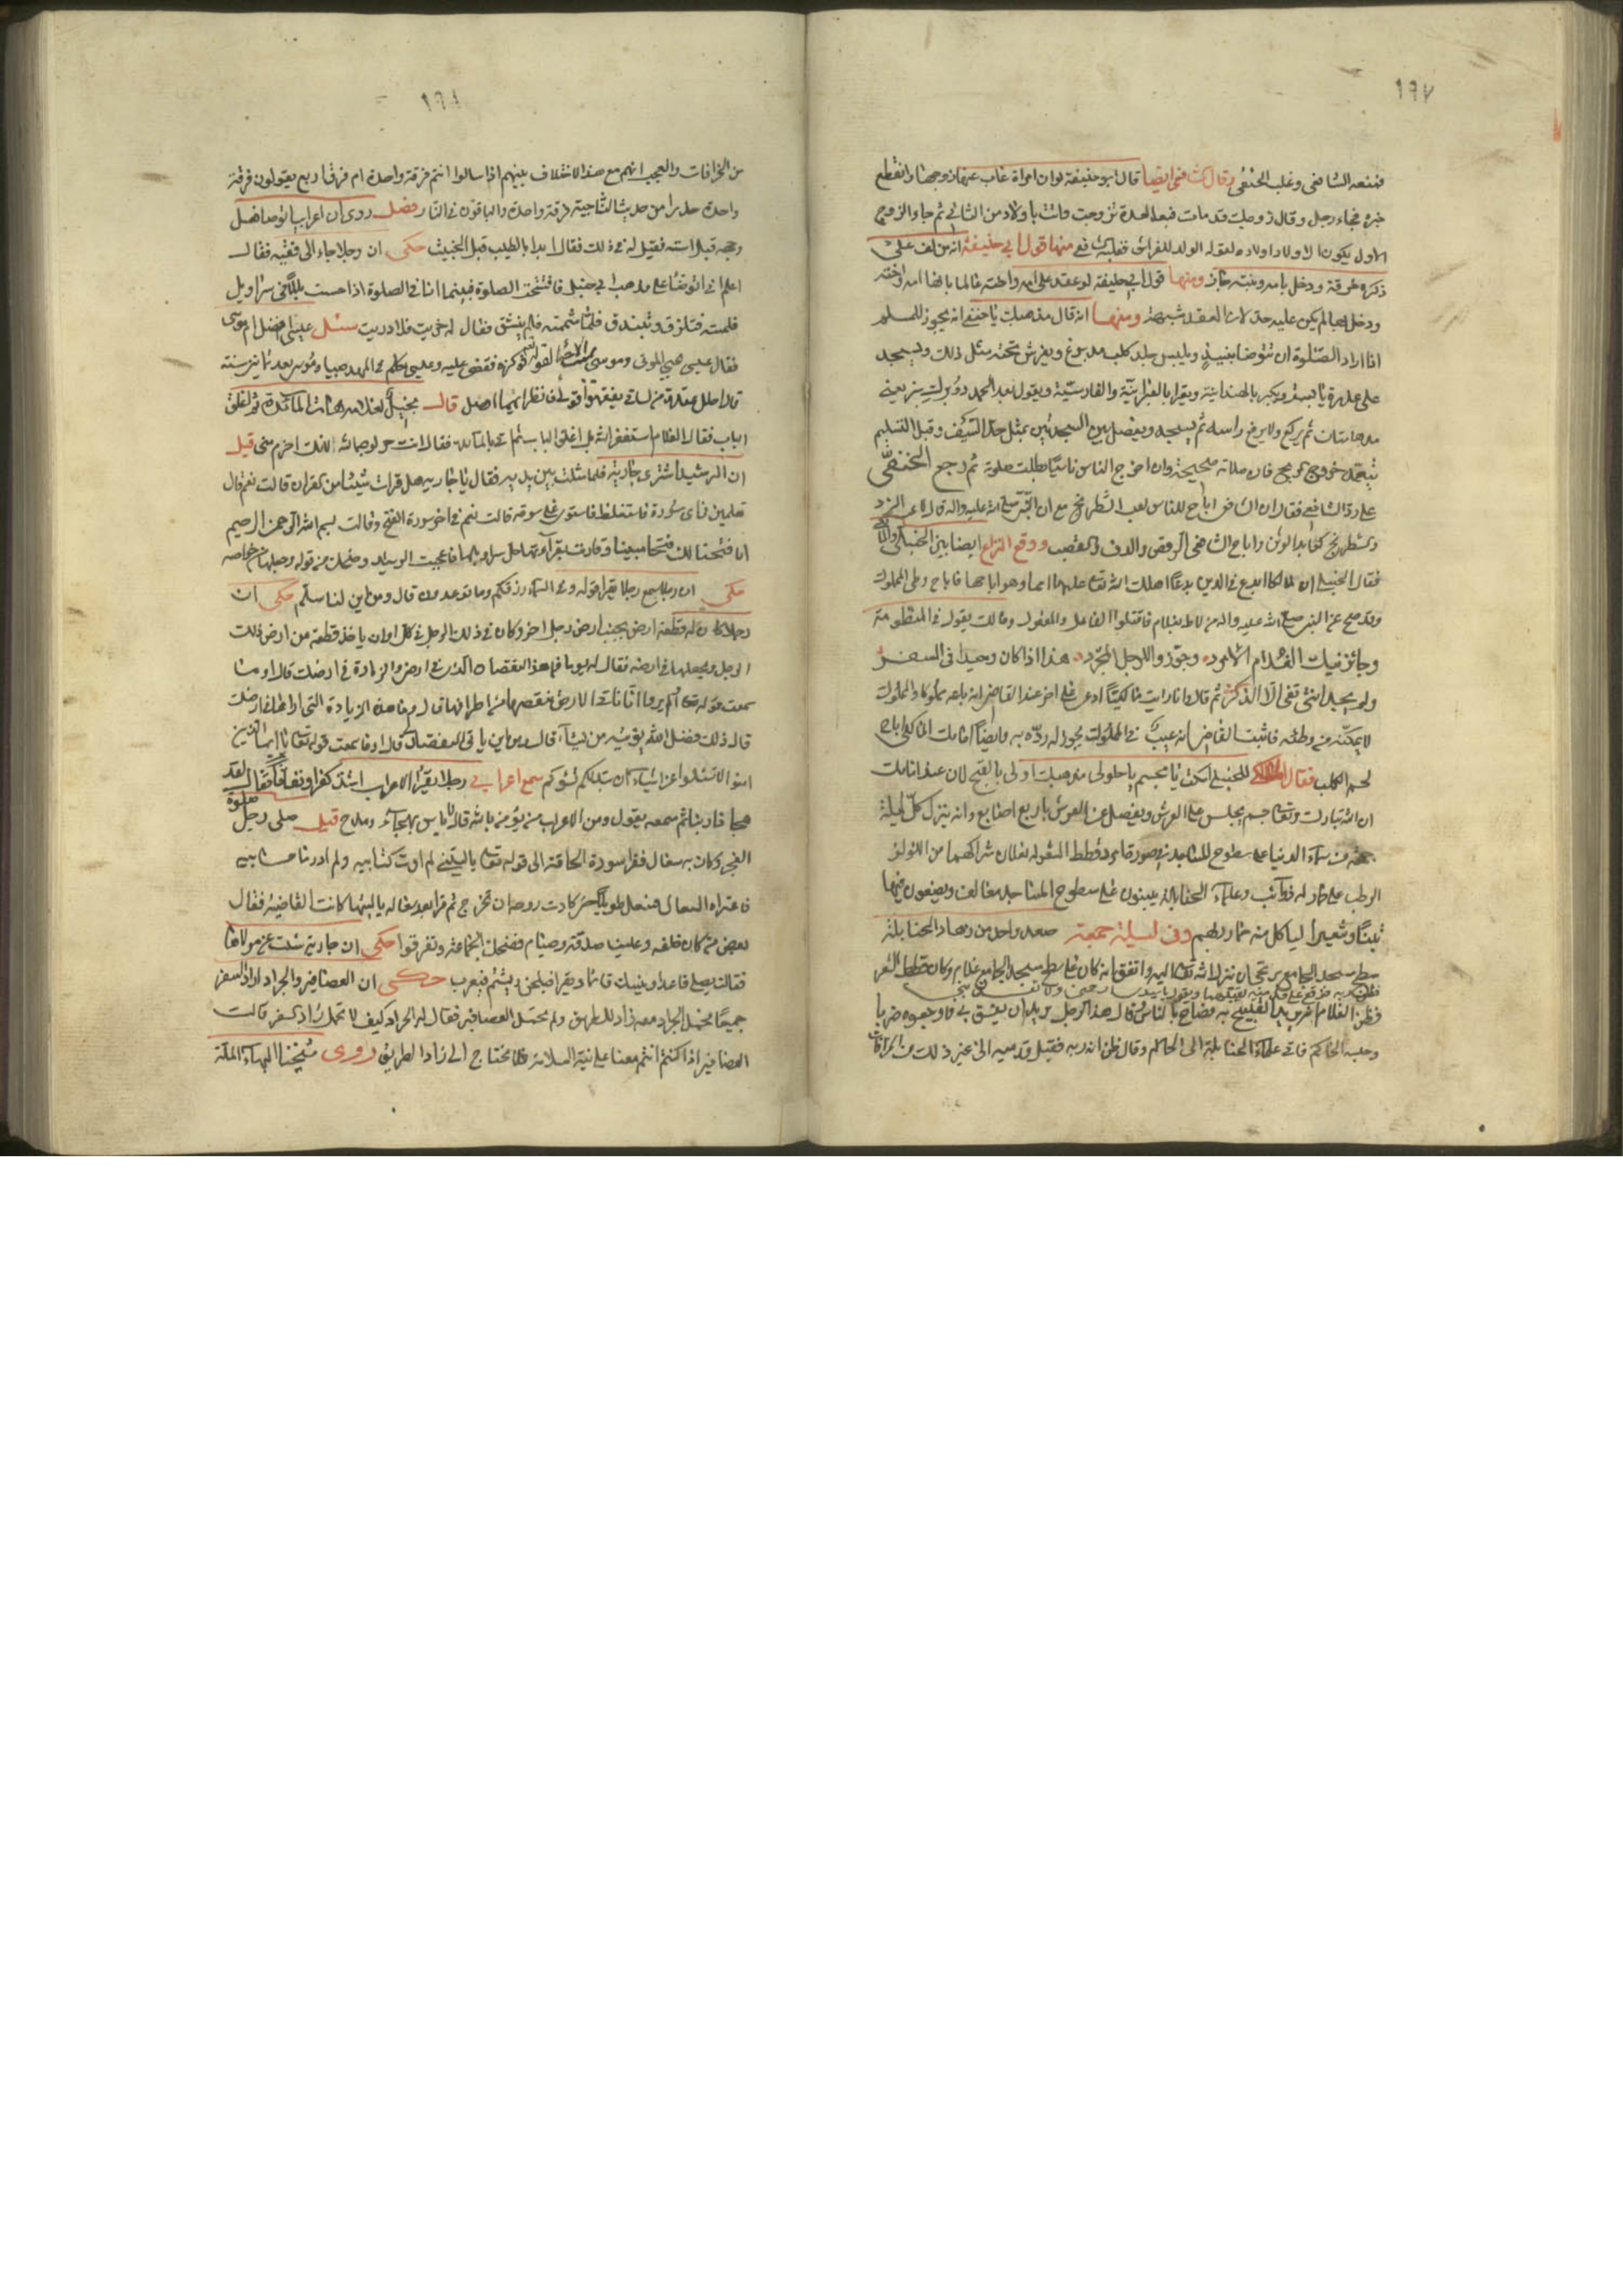 ١٩٧
فمنعه الشافعي وغلب الحنفي وقال الشافعي ايضا قال ابو حنيفة لو ان امراة غاب عنها زوجها وانقطع
خبره فجاء رجل وقال زوجك قد مات فبعد العدة تزوجت واتت باولاد من الثاني ثم جاء الزوج
الاول يكون الاولاد اولاده لقوله الولد للفراش ومنها قول ابي حنيفة انه من لف على
ذكره خرقة ودخل بامه وبنته جاز ومنها قول ابي حنيفة لو عقد على امه واخته عالما بانها امه واخته
ودخل بهما لم يكن عليه حد لان العقد شبهة ومنها انه قال مذهبك يا حنفي انه يجوز للمسلم
اذا اراد الصلوة ان يتوضا بنبيذ ويلبس جلد كلب مدبوغ ويفرش تحته مثل ذلك ويسجد
على عذرة يابسة ويكبر بالهندية ويقرا بالعبرانية والفارسية ويقول بعد الحمد دو برك سبز يعني
مدهامتان ثم يركع ولا يرفع راسه ثم يسجد ويفصل بين السجدتين بمثل حد السيف وقبل التسليم
يتعمد خروج ريح فان صلاته صحيحة وان اخرج الناس ناسيا بطلت صلوته ثم رجع الحنفي
على رد الشافعي فقال ان الشافعي اباح للناس لعب الشطرنج مع ان النبي صلى الله عليه واله قال لاعب النرد
والشطرنج كعابد الوثن واباح الشافعي الرقص والدف والقصب ووقع النزاع ايضا بين الحنبلي والمالكي
فقال الحنبلي ان مالكا ابدع في الدين بدعا اهلك الله تعالى عليها امما وهو اباحها فاباح وطي المملوك
وقد صح عن النبي صلى الله عليه واله من لاط بغلام فاقتلوا الفاعل والمفعول ومالك يقول في المنظومة
وجائز نيك الغلام الامرد وجوزوا للرجل المجرد هذا اذا كان وحيدا في السفر
ولم يجد انثى تفي الا الذكر ثم قال وانا رايت مالكيا ادعى على اخر عند القاضي انه باعه مملوكا والمملوك
لا يمكنه من وطئه فاثبت القاضي انه عيب في المملوك يجوز له رده به وايضا امامك المالكي اباح
لحم الكلب فقال المالكي للحنبلي اسكت يا مجسم يا حلولي مذهبك اولى بالقبح لان عند امامك
ان الله تبارك وتعالى جسم يجلس على العرش ويفضل عن العرش باربع اصابع وانه ينزل كل ليلة
جمعة من سماء الدنيا على سطوح المساجد في صورة امرد قطط الشعر له نعلان شراكهما من اللؤلؤ
الرطب على حمار له ذوائب وعلماء الحنابلة يبنون على سطوح المساجد معالف ويضعون فيها
تبنا وشعيرا لياكل منه حمار ربهم وفي ليلة جمعة صعد واحد من زهاد الحنابلة
سطح مسجد الجامع يرتجي ان ينزل الله تعالى اليه واتفق انه كان على سطح مسجد الجامع غلام وكان قطط الشعر
فظن انه ربه فوقع على قدميه يقبلهما ويقول يا سيدي ارحمني ولا
فظن الغلام انه يريد به القبيح فصاح بالناس قال هذا الرجل يريد ان يفسق بي فاوجعوه ضربا
وحبسه الحاكم فاتى علماء الحنابلة الى الحاكم وقال ظن انه ربه فقبل قدميه الى غير ذلك من الخرافات
١٩٨
من الخرافات والعجب انهم مع هذا الاختلاف بينهم اذا سالوا انتم فرقة واحدة ام فرق اربع يقولون فرقة
واحدة حذرا من حديث الناجية فرقة واحدة والباقون في النار فصل روي ان اعرابيا توضا فغسل
وجهه قبل استه فقيل له في ذلك فقال ابدا بالطيب قبل الخبيث حكي ان رجلا جاء الى فقيه فقال
اعلم اني اتوضا على مذهب ابن حنبل فافتتحت الصلوة فبينما انا في الصلوة اذا حسست ببلل في سراويل
فلمسته فتلزق وتبندق فلما شممته فقال له خريت فلا دريت سئل عيسى افضل ام موسى
فقال عيسى يحيي الموتى وموسى فوكزه فقضى عليه وعيسى تكلم في المهد صبيا وموسى بعد ثمانين سنة
قال احلل عقدة من لساني يفقهوا قولي فانظر ايهما افضل قال بخيل لغلامه هات المائدة واغلق
الباب فقال الغلام استغفر الله بل اغلق الباب ثم اتي بالمائدة فقال انت حر لوجه الله انت احزم مني قيل
ان الرشيد اشترى جارية فلما مثلت بين يديه فقال يا جارية هل قرات شيئا من القران قالت نعم قال
تعلمين في اي سورة فاستغلظ فاستوى على سوقه قالت نعم في اخر سورة الفتح وقالت بسم الله الرحمن الرحيم
انا فتحنا لك فتحا مبينا وقارنت بقراءتها حل سراويلها فاعجبت الرشيد وضحك من قوله وجعلها من خواصه
حكي ان رجلا سمع رجلا يقرا قوله وفي السماء رزقكم وما توعدون قال ومن اين لنا سلم حكي ان
رجلا كان له قطعة ارض بجنب ارض رجل اخر وكان في ذلك الرجل في كل اوان ياخذ قطعة من ارض ذلك
الرجل ويجعلها في ارضه فقال له يوما ما هذا النقصان الذي في ارضي والزيادة في ارضك قال اوما
سمعت قوله تعالى اولم يروا انا ناتي الارض ننقصها من اطرافها قال فما هذه الزيادة التي اراها في ارضك
قال ذلك فضل الله يؤتيه من يشاء قال ومن اين ياتي النقصان قال اوما سمعت قوله تعالى يا ايها الذين
امنوا لا تسئلوا عن اشياء ان تبد لكم تسؤكم سمع اعرابي رجلا يقرا الاعراب اشد كفرا ونفاقا فقال لقد
هجانا ربنا ثم سمعه يقول ومن الاعراب من يؤمن بالله قال لا باس بهجاء ومدح قيل صلى رجل صلوة
الفجر وكان به سعال فقرا سورة الحاقة الى قوله تعالى يا ليتني لم اوت كتابيه ولم ادر ما حسابيه
فاعتراه السعال فسعل طويلا حتى كادت روحه ان تخرج ثم قرا بعد سعاله يا ليتها كانت القاضية فقال
بعض من كان خلفه وعلينا صدقة وصيام فضحك الجماعة وتفرقوا حكي ان جارية سئلت عن مولاها
فقالت يصلي قاعدا وينيك قائما ويقرا فيلحن ويشتم فيعرب حكي ان العصافير والجراد ارادوا السفر
جميعا فحمل الجراد معه زاد للطريق ولم يحمل العصافير فقال له الجراد كيف لا تحمل زاد السفر قالت
العصافير اذا كنتم انتم معنا على نية السلامة فلا نحتاج الى زاد الطريق روى شيخنا البهاء الملة